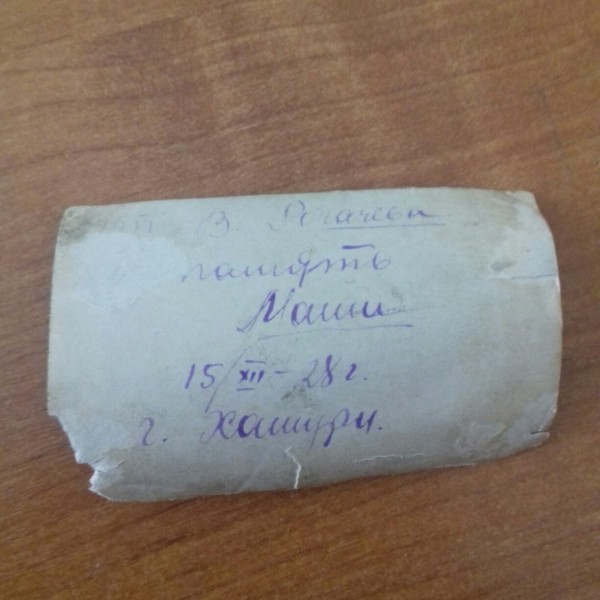 В. Рогачева
память
Маши
15/XII - 28 г.
г. Хашури.